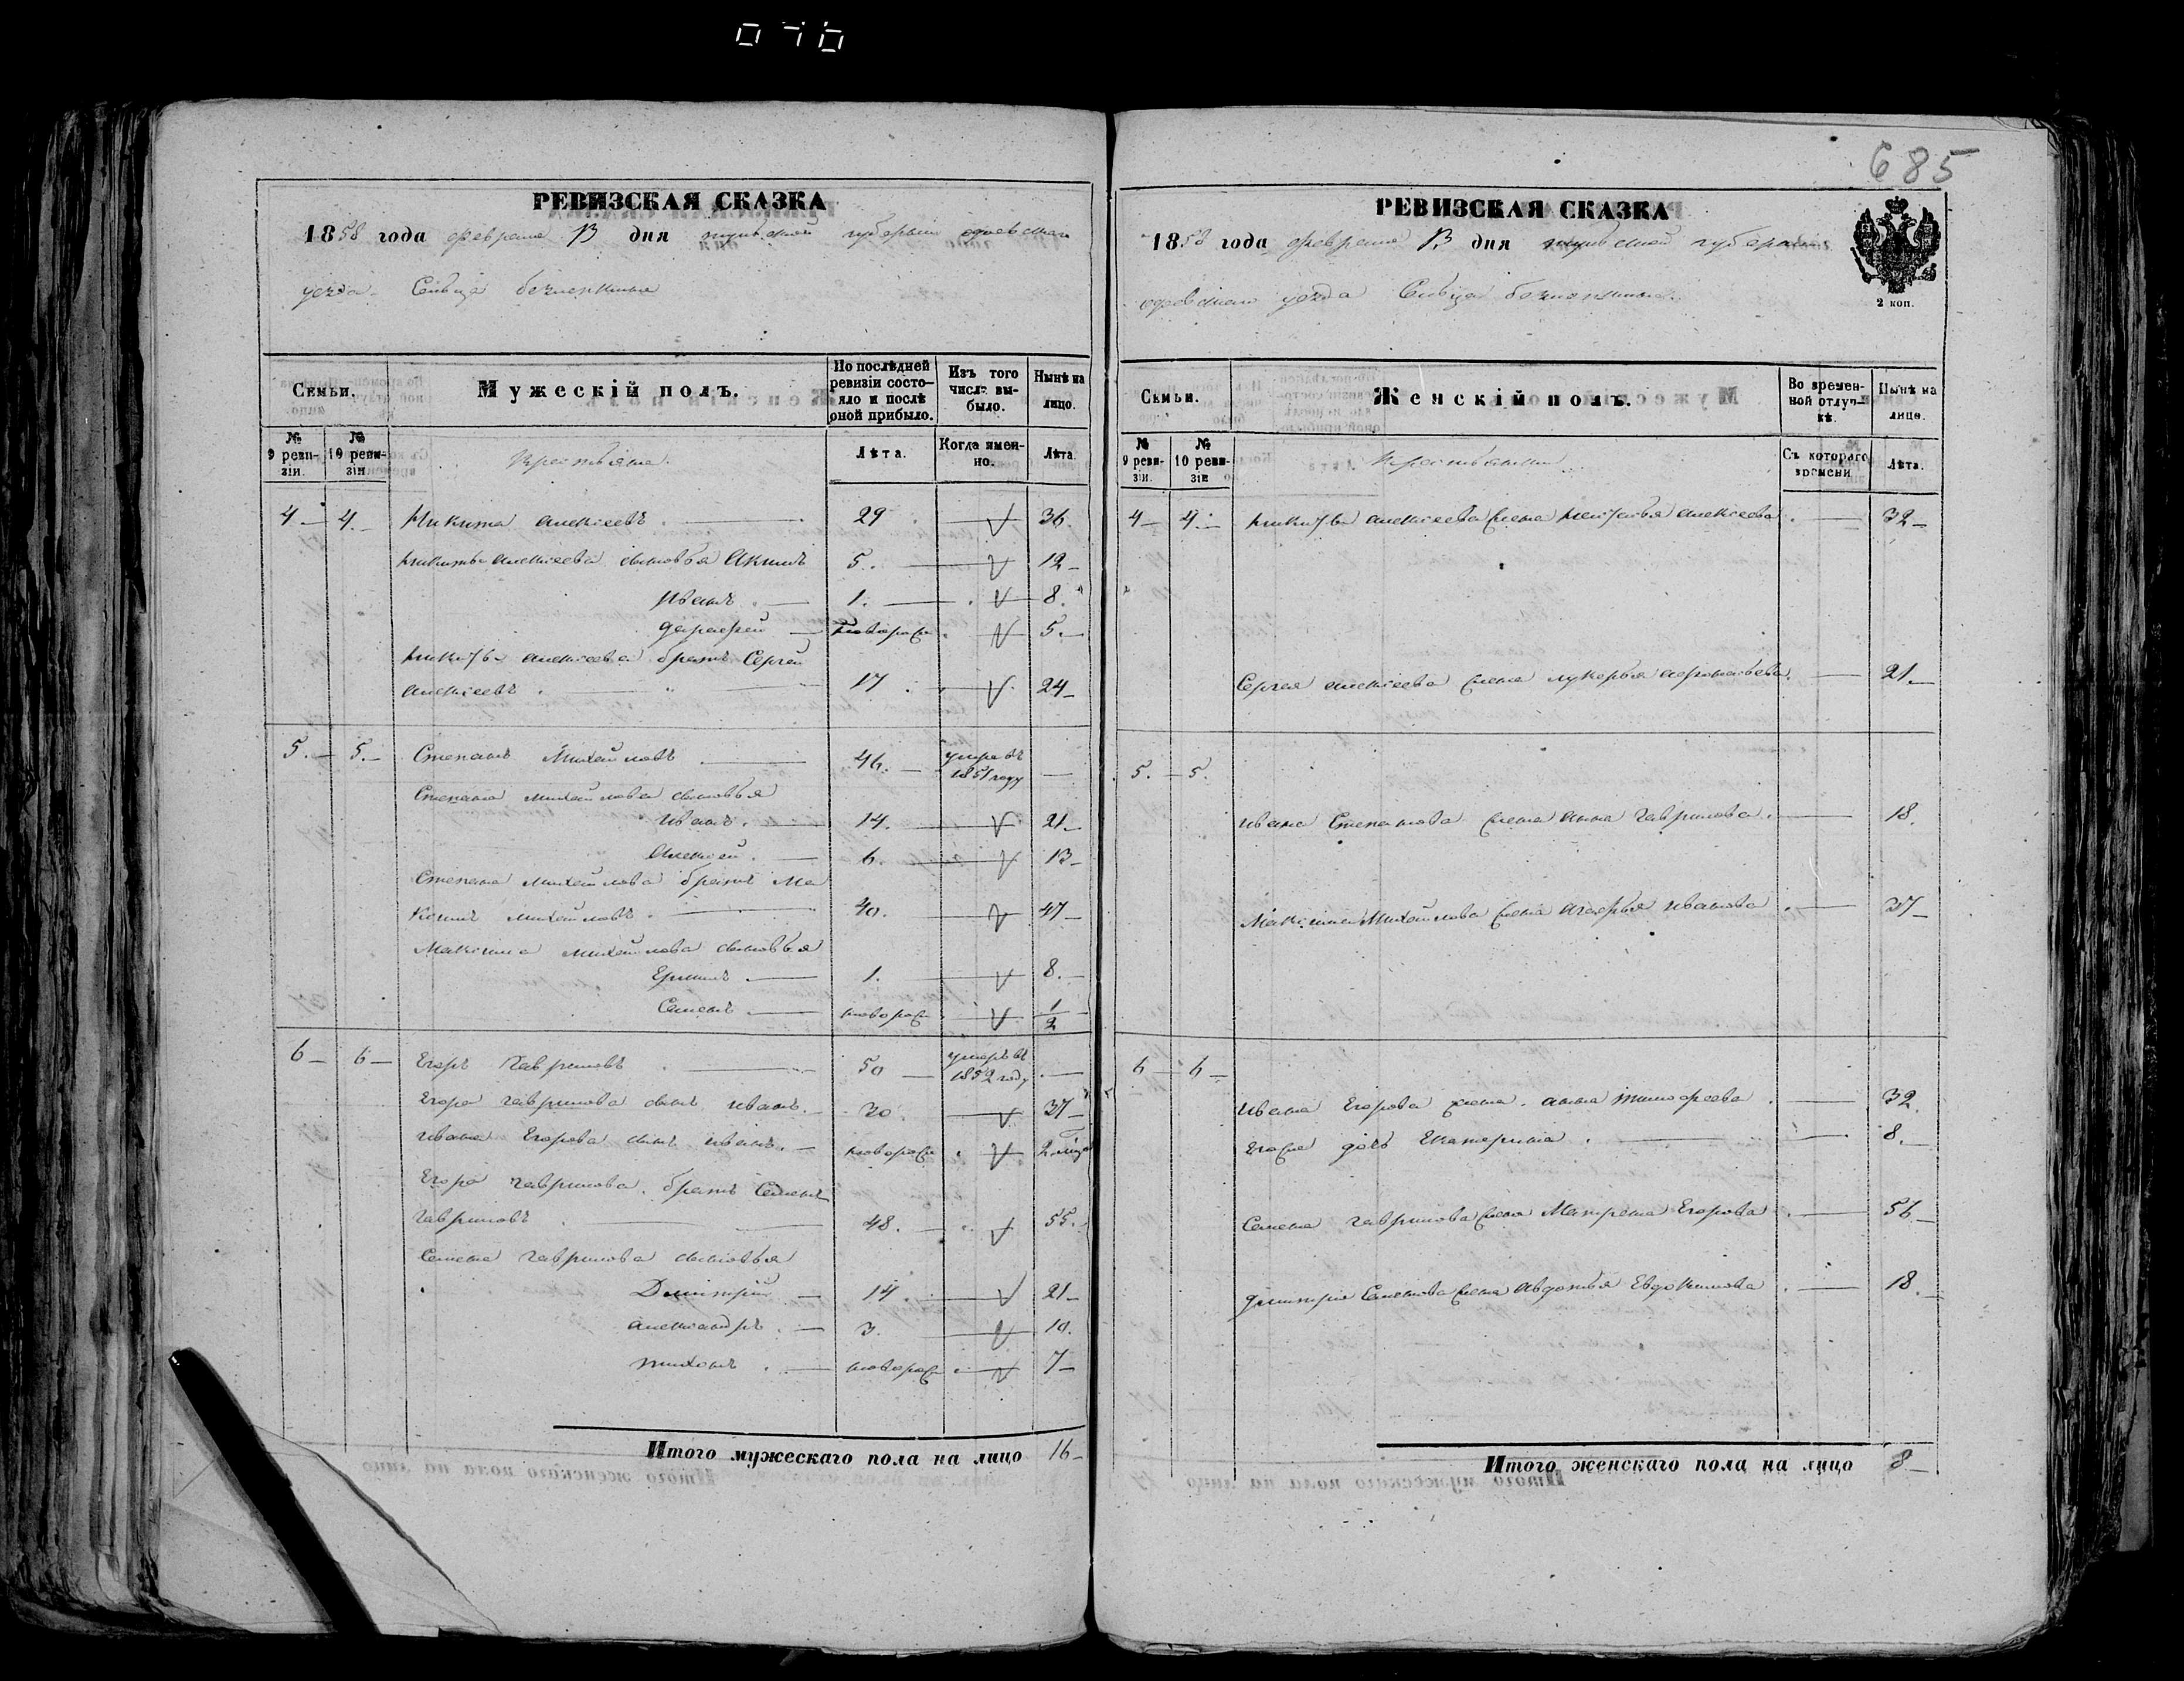 685
РЕВИЗСКАЯ СКАЗКА
1858 года февраля 13 дня тульской губернiи одоевскаго
уезда Сельца
Семьи.
Мужескiй полъ.
По послѣдней ревизiи состо-яло и послѣ оной прибыло.
Изъ того числа вы-было.
Нынѣ на лицо.
№ 9 реви-зiи.
№ 10 реви-зiи
Крестьяне.
Лѣта.
Когда имен-но.
Лѣта.
4 — 4 — Никита Алексеевъ 29 36
Никиты Алексеева сыновья Акимъ 5. 12
Иванъ 1. 8.
Дарафей новорож 5.
Никиты Алексеева братъ Сергей
Алексеевъ 17 24
5. — 5. — Степанъ Михайловъ 46. умре въ 1851 году —
Степана Михайлова сыновья
Иванъ 14. 21
Алексей 6. 13
Степана Михайлова братъ Ма
ксимъ Михайловъ 40. 47
Максима Михайлова сыновья
Ермилъ 1. 8.
Семенъ новорож 1/2
6 — 6 — Егоръ Гавриловъ 50 умеръ въ 1852 году —
Егора Гаврилова сынъ Иванъ 30. 37
Ивана Егорова сынъ Иванъ новорож 2
Егора Гаврилова братъ Семенъ
Гавриловъ 48. 55.
Семена Гаврилова сыновья
Дмитрий 14. 21
Александръ 3. 10.
Тихонъ новорож 7
Итого мужескаго пола на лицо 16
РЕВИЗСКАЯ СКАЗКА
1858 года февраля 13 дня тульской губернiи
одоевскаго уезда Сельца
2 коп.
Семьи.
Женскiй полъ.
Во времен-ной отлуч-кѣ.
Нынѣ на лицо.
№ 9 реви-зiи.
№ 10 реви-зiи
Крестьянки
Съ котораго времени
Лѣта.
4 — 4 — Никиты Алексеева жена Наталья Алексеева 32
Сергея Алексеева жена лукерья 21.
5. — 5.
Ивана Степанова жена Анна Гаврилова 18.
Максима Михайлова жена Иванова 37
6 — 6
Ивана Егорова жена Анна тимофеева 32.
Егожа дочь Екатерина 8.
Семена Гаврилова жена Матрена Егорова 56
Дмитрия Семенова жена Авдотья Евдокимова 18.
Итого женскаго пола на лицо 8